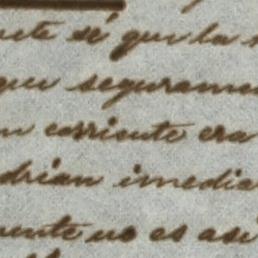 ente sé que la
que seguramen
n corriente era
drian imedia
mente no es asi